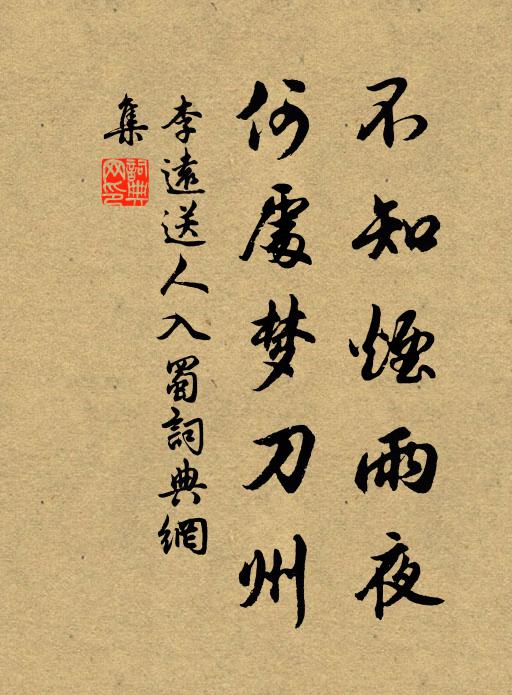 不知煙雨夜
何處梦刀州
李遠送人入蜀詞典網
集
詞典網印